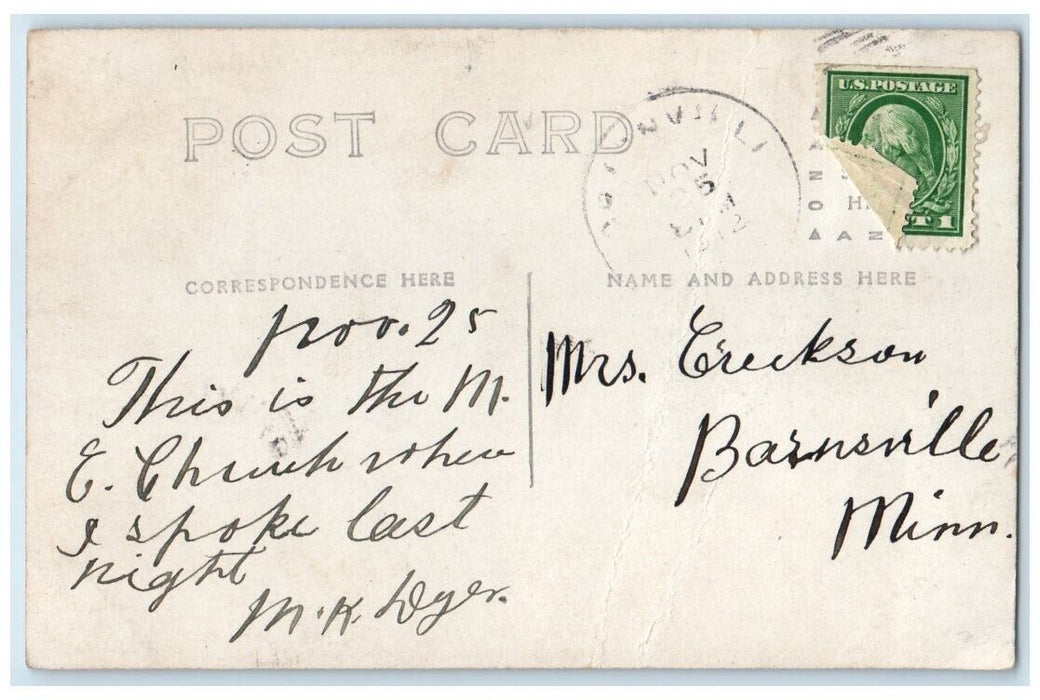 POST CARD
NOV
25
U.S. POSTAGE
T 1
CORRESPONDENCE HERE
NAME AND ADDRESS HERE
Nov. 25
This is the M.
E. Church where
I spoke last
night
M. K. Dyer.
Mrs. Erickson
Barnsville
Minn.